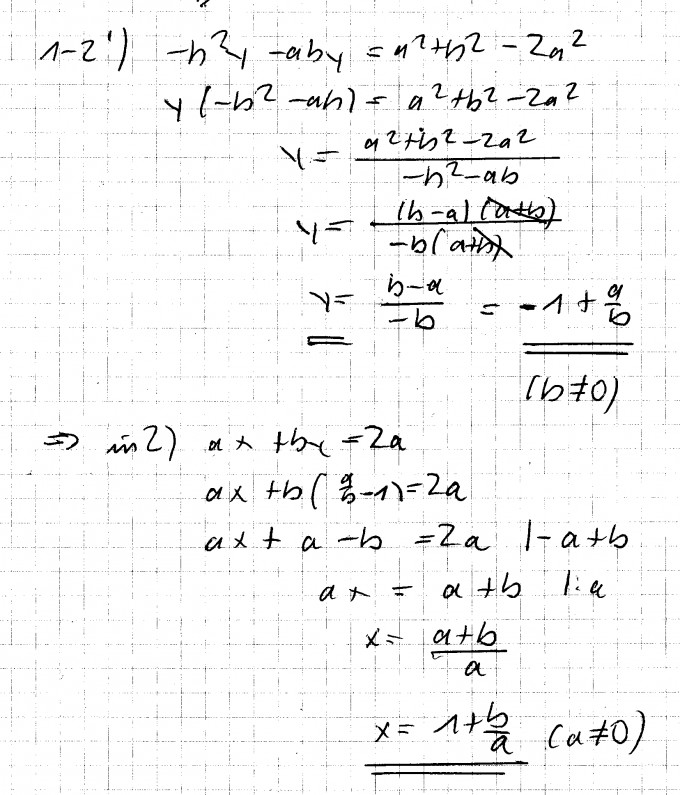 1-2') -b²y - aby = a²+b² - 2a²
y (-b² - ab) = a²+b² - 2a²
y = (a²+b² - 2a²)/(-b² - ab)
y = ((b-a)(a+b))/(-b(a+b))
y = (b-a)/(-b) = -1 + a/b
(b≠0)
⇒ in 2) ax + by = 2a
ax + b(a/b - 1) = 2a
ax + a - b = 2a |-a+b
ax = a+b |:a
x = (a+b)/a
x = 1 + b/a (a≠0)